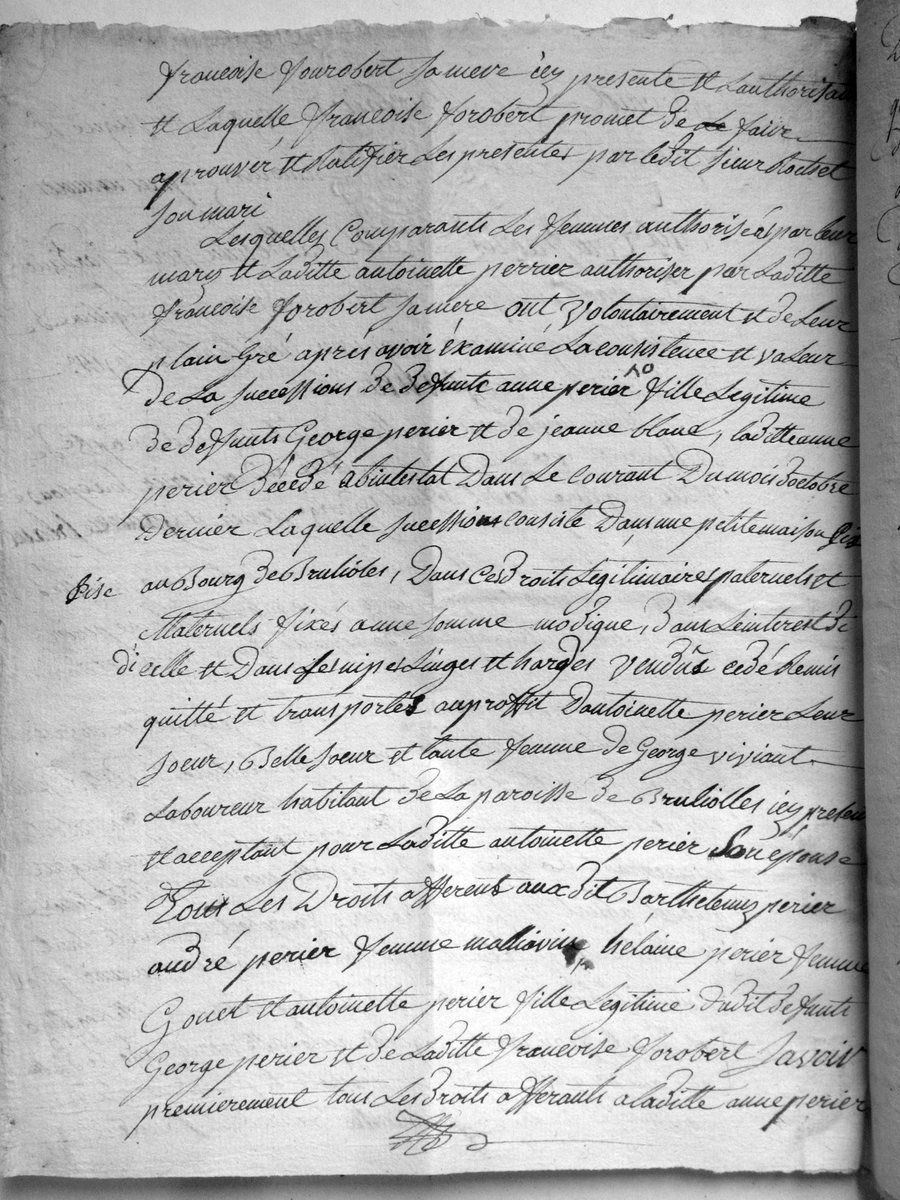 francoise forobert sa mere icy presente et L'authorisant
et Laquelle francoise forobert promet de faire
aprouvér et Ratifier Les presentes par ledit sieur
son mari
Lesquelles Comparants Les femmes authorisées par leur
marys et Laditte antoinette perrier authoriser par Laditte
francoise forobert sa mere ont volontairement et de Leur
plain Gré apres avoir éxaminé La consistence et valeur
de La successions de defunte anne perier fille Legitime
de defunts George perier et de jeanne blanc, laditte anne
perier décedé abintestat Dans Le courant Du mois doctobre
Dernier Laquelle successions consiste Dans une petite maison
sise au Bourg de Brulioles, Dans ces Droits Legitimaires paternels et
Maternels fixés a une somme modique, Dans Leinterest
di celle et Dans Les nipes Linges et hardes vendus cedé Remis
quitté et transportés au proffit Dantoinette perier Leur
soeur, Belle soeur et tante femme de George viviant
Laboureur habitant de La paroisse de Bruliolles icy present
et acceptant pour Laditte antoinette perier Son épouse
Tous Les Droits afferents aux dit Barthelemy perier
andré perier femme hélaine perier femme
Gouet et antoinette perier fille Legitime dudit defunt
George perier et de Laditte francoise forobert Savoir
premierement tous Les Droits afferants a laditte anne perier